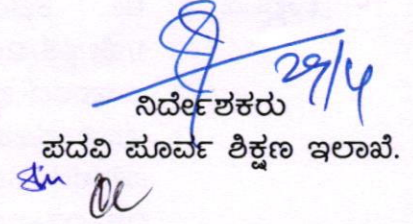 29/4
ನಿರ್ದೇಶಕರು
ಪದವಿ ಪೂರ್ವ ಶಿಕ್ಷಣ ಇಲಾಖೆ.